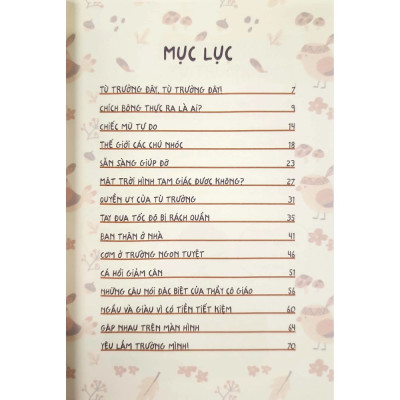 MỤC LỤC
TỪ TRƯỜNG ĐÂY, TỪ TRƯỜNG ĐÂY! 7
CHÍCH BÔNG THỰC RA LÀ AI? 9
CHIẾC MŨ TỰ DO 14
THẾ GIỚI CÁC CHÚ NHÓC 18
SẴN SÀNG GIÚP ĐỠ 23
MẶT TRỜI HÌNH TAM GIÁC ĐƯỢC KHÔNG? 27
QUYỀN UY CỦA TỪ TRƯỜNG 31
TAY ĐUA TỐC ĐỘ BỊ RÁCH QUẦN 35
BẠN THÂN Ở NHÀ 41
CƠM Ở TRƯỜNG NGON TUYỆT 46
CÁ HỒI GIẢM CÂN 51
NHỮNG CÂU NÓI ĐẶC BIỆT CỦA THẦY CÔ GIÁO 56
NGẦU VÀ GIÀU VÌ CÓ TIỀN TIẾT KIỆM 60
GẶP NHAU TRÊN MÀN HÌNH 64
YÊU LẮM TRƯỜNG MÌNH! 70